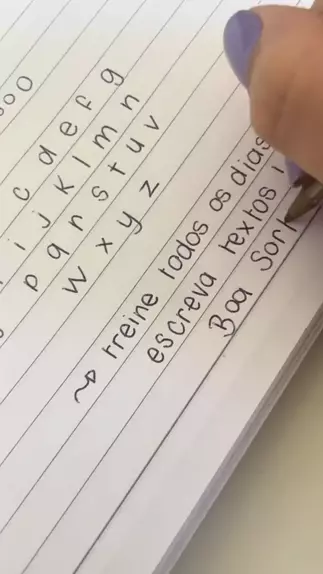 ooo
c d e f g
i j k l m n
p q r s t u v
w x y z
treine todos os dias
escreva textos
Boa Sort